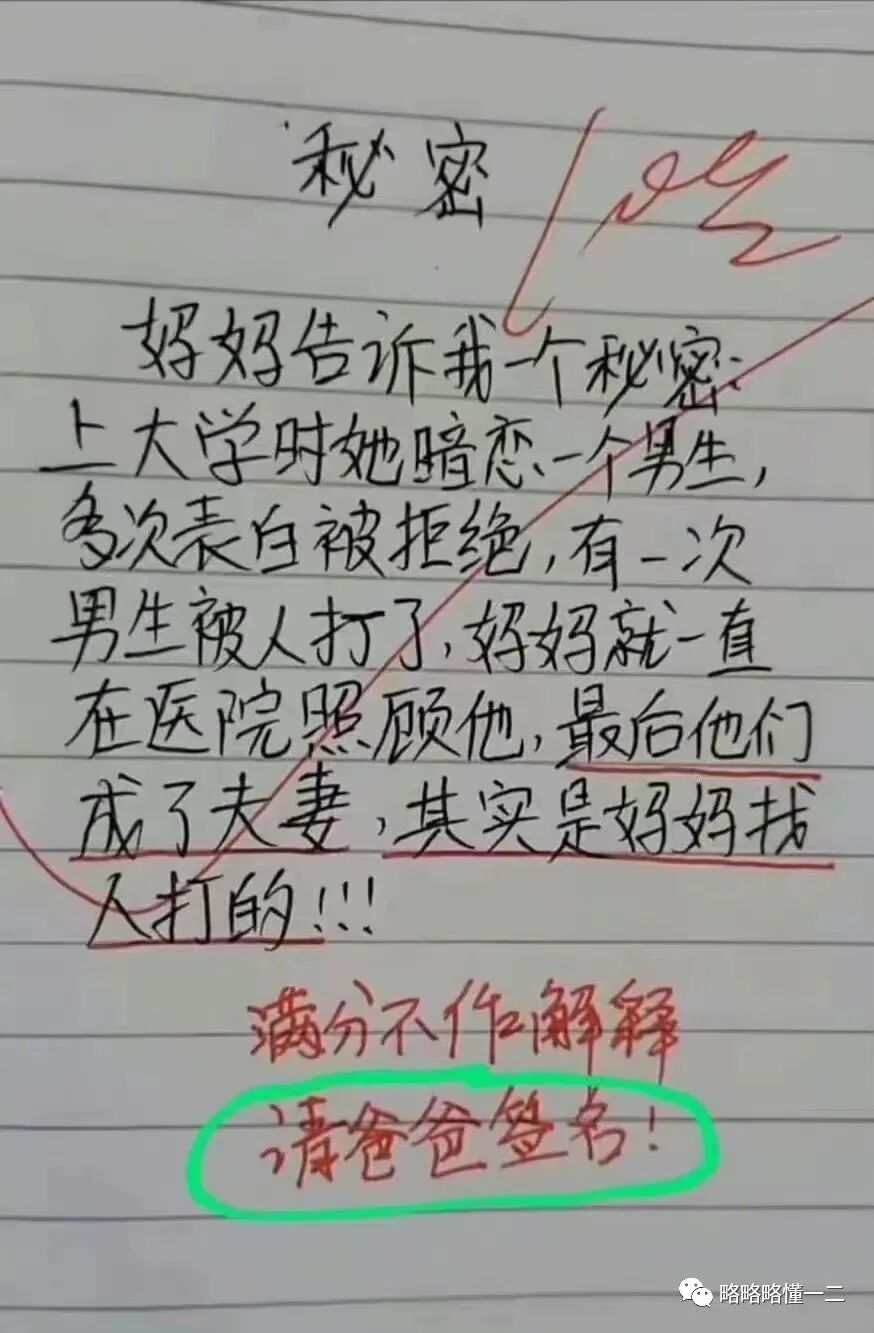 秘密
妈妈告诉我一个秘密:
上大学时她暗恋一个男生,
多次表白被拒绝,有一次
男生被人打了,妈妈就一直
在医院照顾他,最后他们
成了夫妻,其实是妈妈找
人打的!!!
满分不作解释
请爸爸签名!
略略略懂一二